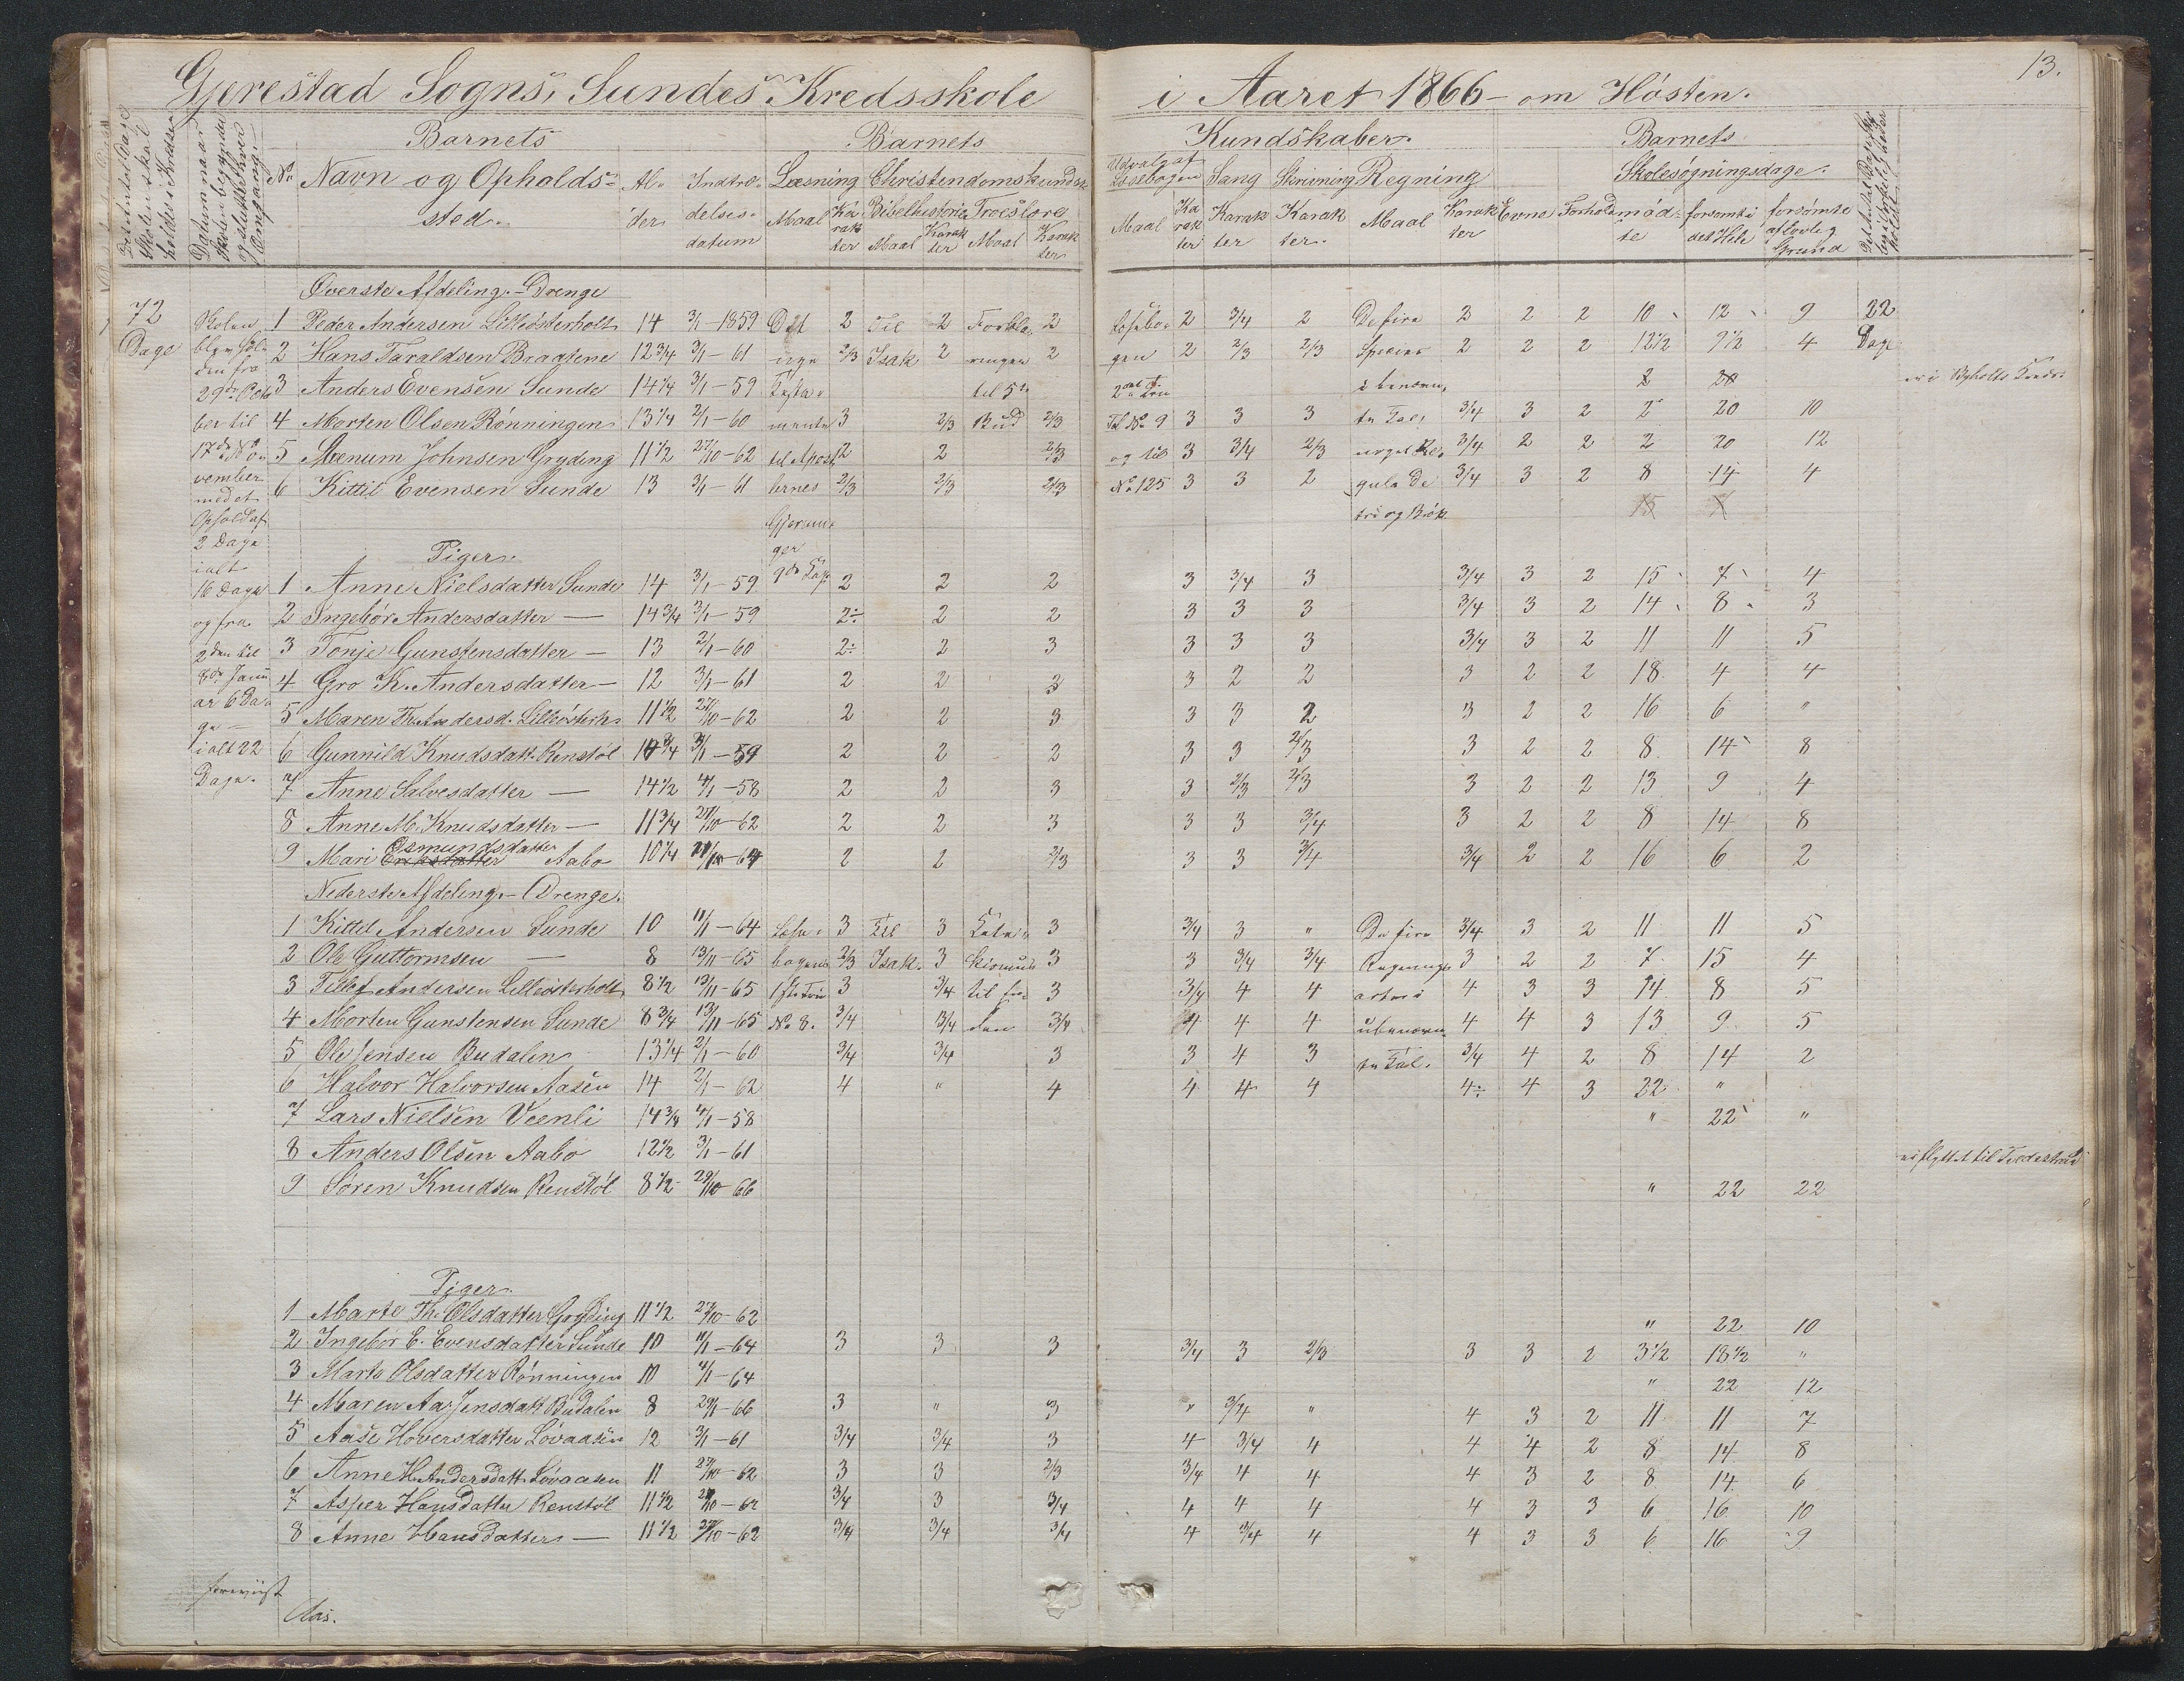 13.
Gjerestad Sogns, Sundes Kredsskole i Aaret 1866 – om Hösten.
Barnets Barnets Kundskaber. Barnets
Det Antal Dage Skolen skal holdes i Kredsen
Datum naar Skolen begynder og slutter hver Omgang.
No Navn og Opholdssted. Alder Indtrædelsesdatum
Læsning Maal Karakter
Christendomskundsk. Bibelhistorie Maal Karakter Troeslære Maal Karakter
Udvalg af Læsebogen Maal Karakter
Sang Karakter
Skrivning Karakter.
Regning Maal Karakter
Evne Forhold
Skolesøgningsdage. mødte forsømte i det Hele forsømte af lovlig Grund
Øverste Afdeling. – Drenge
72 Dage
Skolen blev holden fra 29de October til 17de November med et Ophold af 2 Dage ialt 16 Dage og fra 2den til 8de Januar 6 Dage – ialt 22 Dage.
1 Peder Andersen Lilleösterholt 14 3/1 – 1859 Det 2 Til 2 Forkla- 2 Læsebo- 2 3/4 2 De fire 2 2 2 10 12 9 22
2 Hans Taraldsen Braatene 12 3/4 3/1 – 61 nye 2/3 Isak 2 ringen 2 gen 2 2/3 2/3 Species 2 2 2 12 1/2 9 1/2 4 Dage
3 Anders Evensen Sunde 14 1/4 3/1 – 59 Testa- til 5te 2det Trin i benævn- 2 20 er i Kreds.
4 Morten Olsen Rønningen 13 1/4 2/1 – 60 mente 3 2/3 Bud 2/3 Til No 9 3 3 3 te Tal, 3/4 3 2 2 20 10
5 Johnsen Gryding 11 1/2 27/10 – 62 til Apost- 2 2 2/3 og til 3 3/4 2/3 3/4 2 2 2 20 12
6 Kittil Evensen Sunde 13 3/1 – 61 lernes 2/3 2/3 2/3 No 125 3 3 2 gula de 3/4 3 2 8 14 4
Gjerninger 9de Kap. tri og Brök 15
Piger.
1 Anne Nielsdatter Sunde 14 3/1 – 59 2 2 2 3 3/4 3 3/4 3 2 15 7 4
2 Ingebør Andersdatter — 14 3/4 3/1 – 59 2÷ 2 2 3 3 3 3/4 3 2 14 8 3
3 Tonje Gunstensdatter – 13 2/1 – 60 2÷ 2 3 3 3 3 3/4 3 2 11 11 5
4 Gro K. Andersdatter – 12 3/1 – 61 2 2 3 3 2 2 3 2 2 18 4 4
5 Maren Th. Andersd. Lilleösterh. 11 1/2 27/10 – 62 2 2 3 3 3 2 3 2 2 16 6 "
6 Gunnild Knudsdatt. Renstöl 3/1 – 59 2 2 2 3 3 2/3 3 2 2 8 14 8
7 Anne Salvesdatter — 14 1/2 4/1 – 58 2 2 3 3 2/3 2/3 3 2 2 13 9 4
8 Anne M. Knudsdatter — 11 3/4 27/10 – 62 2 2 3 3 3 3/4 3 2 2 8 14 8
9 Mari Osmundsdatter Aabo 10 1/4 2 2 2/3 3 3 3/4 3/4 2 2 16 6 2
Nederste Afdeling. – Drenge.
1 Kittil Andersen Sunde 10 11/1 – 64 Læse- 3 Til 3 Kate- 3 3/4 3 " De fire 3/4 3 2 11 11 5
2 Ole Guttormsen — 8 13/11 – 65 bogens 2/3 Isak. 3 kismus 3 3 3/4 3/4 Regnings- 3 2 2 7 15 4
3 Tellef Andersen Lilleösterholt 8 1/2 13/11 – 65 1ste Trin 3 3/4 3 3/4 4 4 arter i 4 3 3 14 8 5
4 Morten Gunstensen Sunde 8 3/4 13/11 – 65 No 8. 3/4 3/4 3/4 4 4 4 ubenævn- 4 4 3 13 9 5
5 Ole Jensen Budalen 13 1/4 2/1 – 60 3/4 3/4 3 3 4 3 te Tal. 3/4 4 2 8 14 2
6 Halvor Halvorsen Aasen 14 2/1 – 62 4 " 4 4 4 4 4÷ 4 3 22 "
7 Lars Nielsen Veenli 14 3/4 4/1 – 58 " 22 "
8 Anders Olsen Aabo 12 1/2 3/1 – 61 er flyttet til
9 Søren Knudsen Renstöl 8 1/2 29/10 – 66 " 22 22
Piger.
1 Marte Th. Olsdatter Gryding 11 1/2 27/10 – 62 " 22 10
2 Ingebor E. Evensdatter Sunde 10 11/1 – 64 3 3 3 3/4 3 2/3 3 3 2 3 1/2 18 1/2 "
3 Marte Olsdatter Rønningen 10 11/1 – 64 " 22 12
4 Maren Aa. Jensdatt. Budalen 8 – 66 3 " 3 " 3/4 " 4 3 2 11 11 7
5 Aase Hoversdatter Lövaasen 12 3/1 – 61 3/4 3/4 3 4 3/4 4 4 4 2 8 14 8
6 Anne H. Andersdatt. Lövaasen 11 27/10 – 62 3 3 2/3 3/4 4 4 4 3 2 8 14 6
7 Asper Hansdatter Renstöl 11 1/2 27/10 – 62 3/4 3 3/4 4 4 4 4 3 3 6 16 10
8 Anne Hansdatter — 11 1/2 27/10 – 62 3/4 3/4 3/4 4 3/4 4 4 3 3 6 16 9
foreviist
Aas.